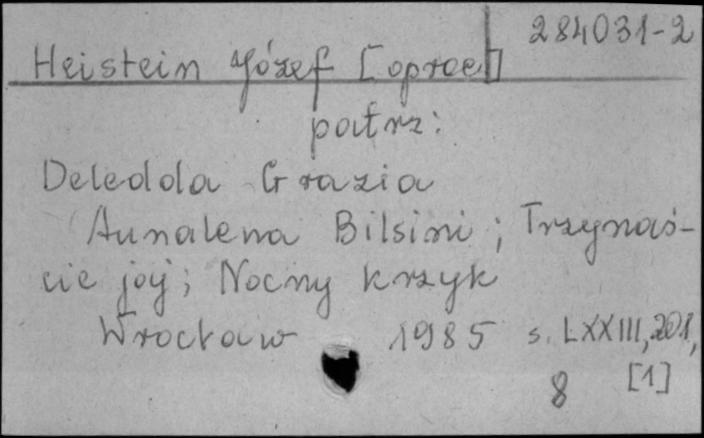 284031-2
Heistein Józef [oprac]
patrz:
Deledda Grazia
Annalena Bilsini; Trzynaś-
cie jaj; Nocny krzyk
Wrocław 1985 s. LXXIII, 201,
8 [1]